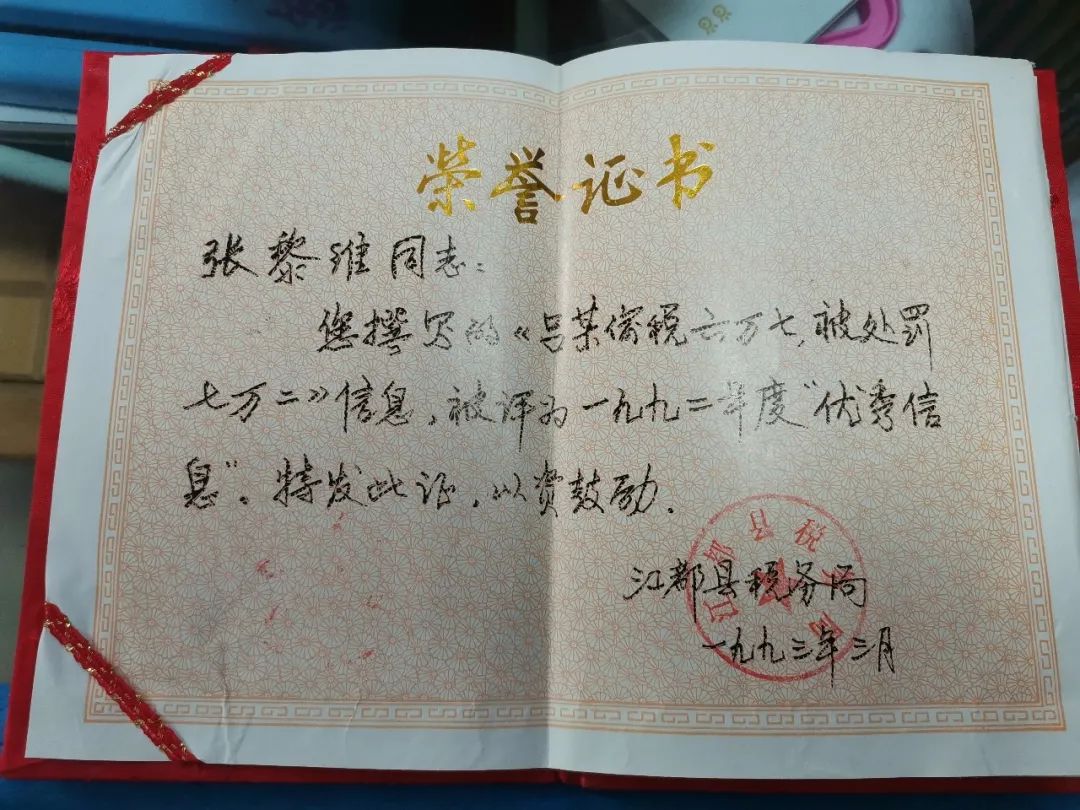 荣誉证书
张黎维同志：
您撰写的《吕某偷税六万七，被处罚
七万二》信息，被评为一九九二年度“优秀信
息”。特发此证，以资鼓励.
江都县税务局
江都县税务局
一九九三年三月